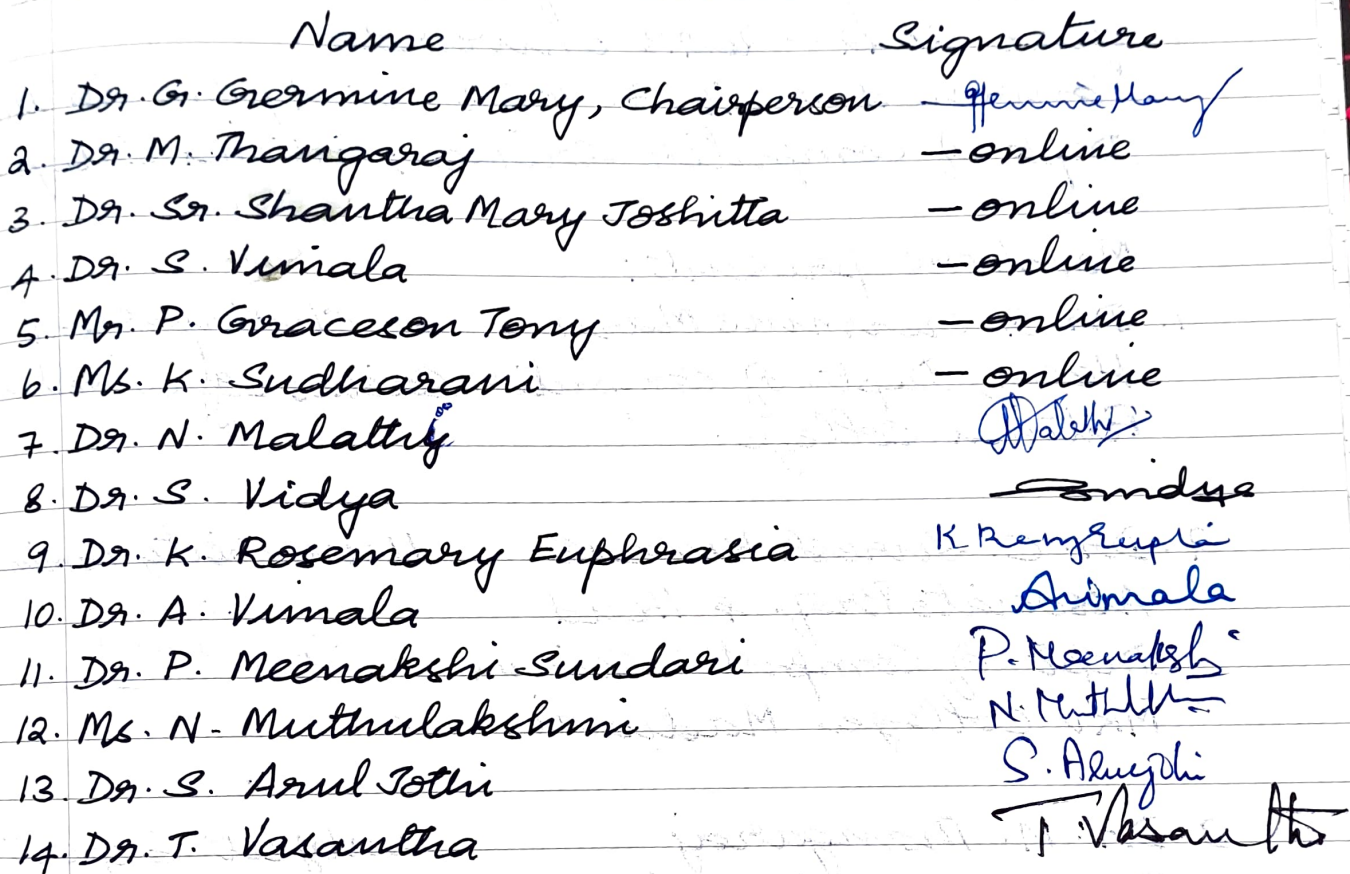 Name Signature
1. Dr. G. Germine Mary, Chairperson -
2. Dr. M. Thangaraj - online
3. Dr. Sr. Shantha Mary Joshitta - online
4. Dr. S. Vimala - online
5. Mr. P. Graceson Tony - online
6. Ms. K. Sudharani - online
7. Dr. N. Malathi
8. Dr. S. Vidya
9. Dr. K. Rosemary Euphrasia
10. Dr. A. Vimala
11. Dr. P. Meenakshi Sundari P. Meenakshi
12. Ms. N. Muthulakshmi
13. Dr. S. Arul Jothi
14. Dr. T. Vasantha T. Vasantha